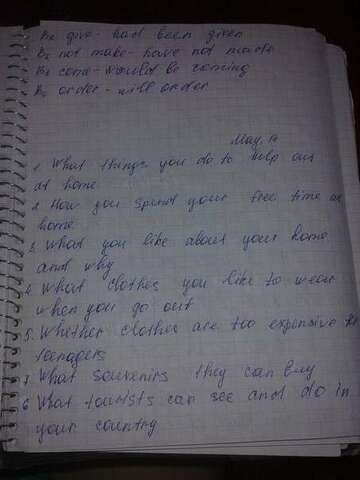 B1 give - had been given
B2 not make - have not made
B3 come - would be coming
B4 order - will order
May, 14
1. What things you do to help out
at home
2. How you spend your free time at
home
3. What you like about your home
and why
4. What clothes you like to wear
when you go out
5. Whether clothes are too expensive for
teenagers
7 What souvenirs they can buy
6 What tourists can see and do in
your country